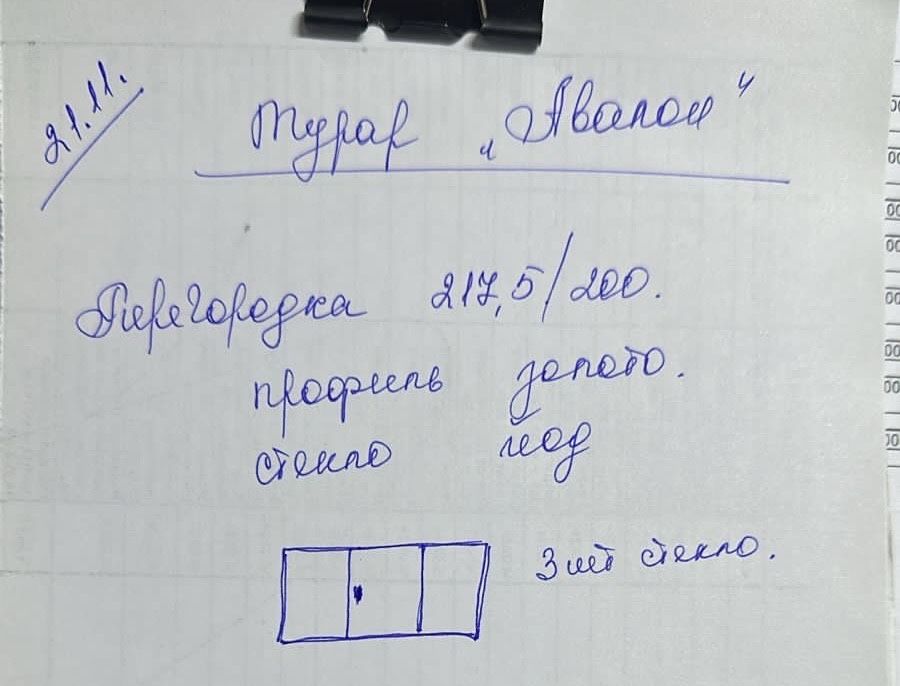 21.11.
Турар „Авалон"
Перегородка 217,5/200.
профиль золото.
стекло йод
3 шт стекло.